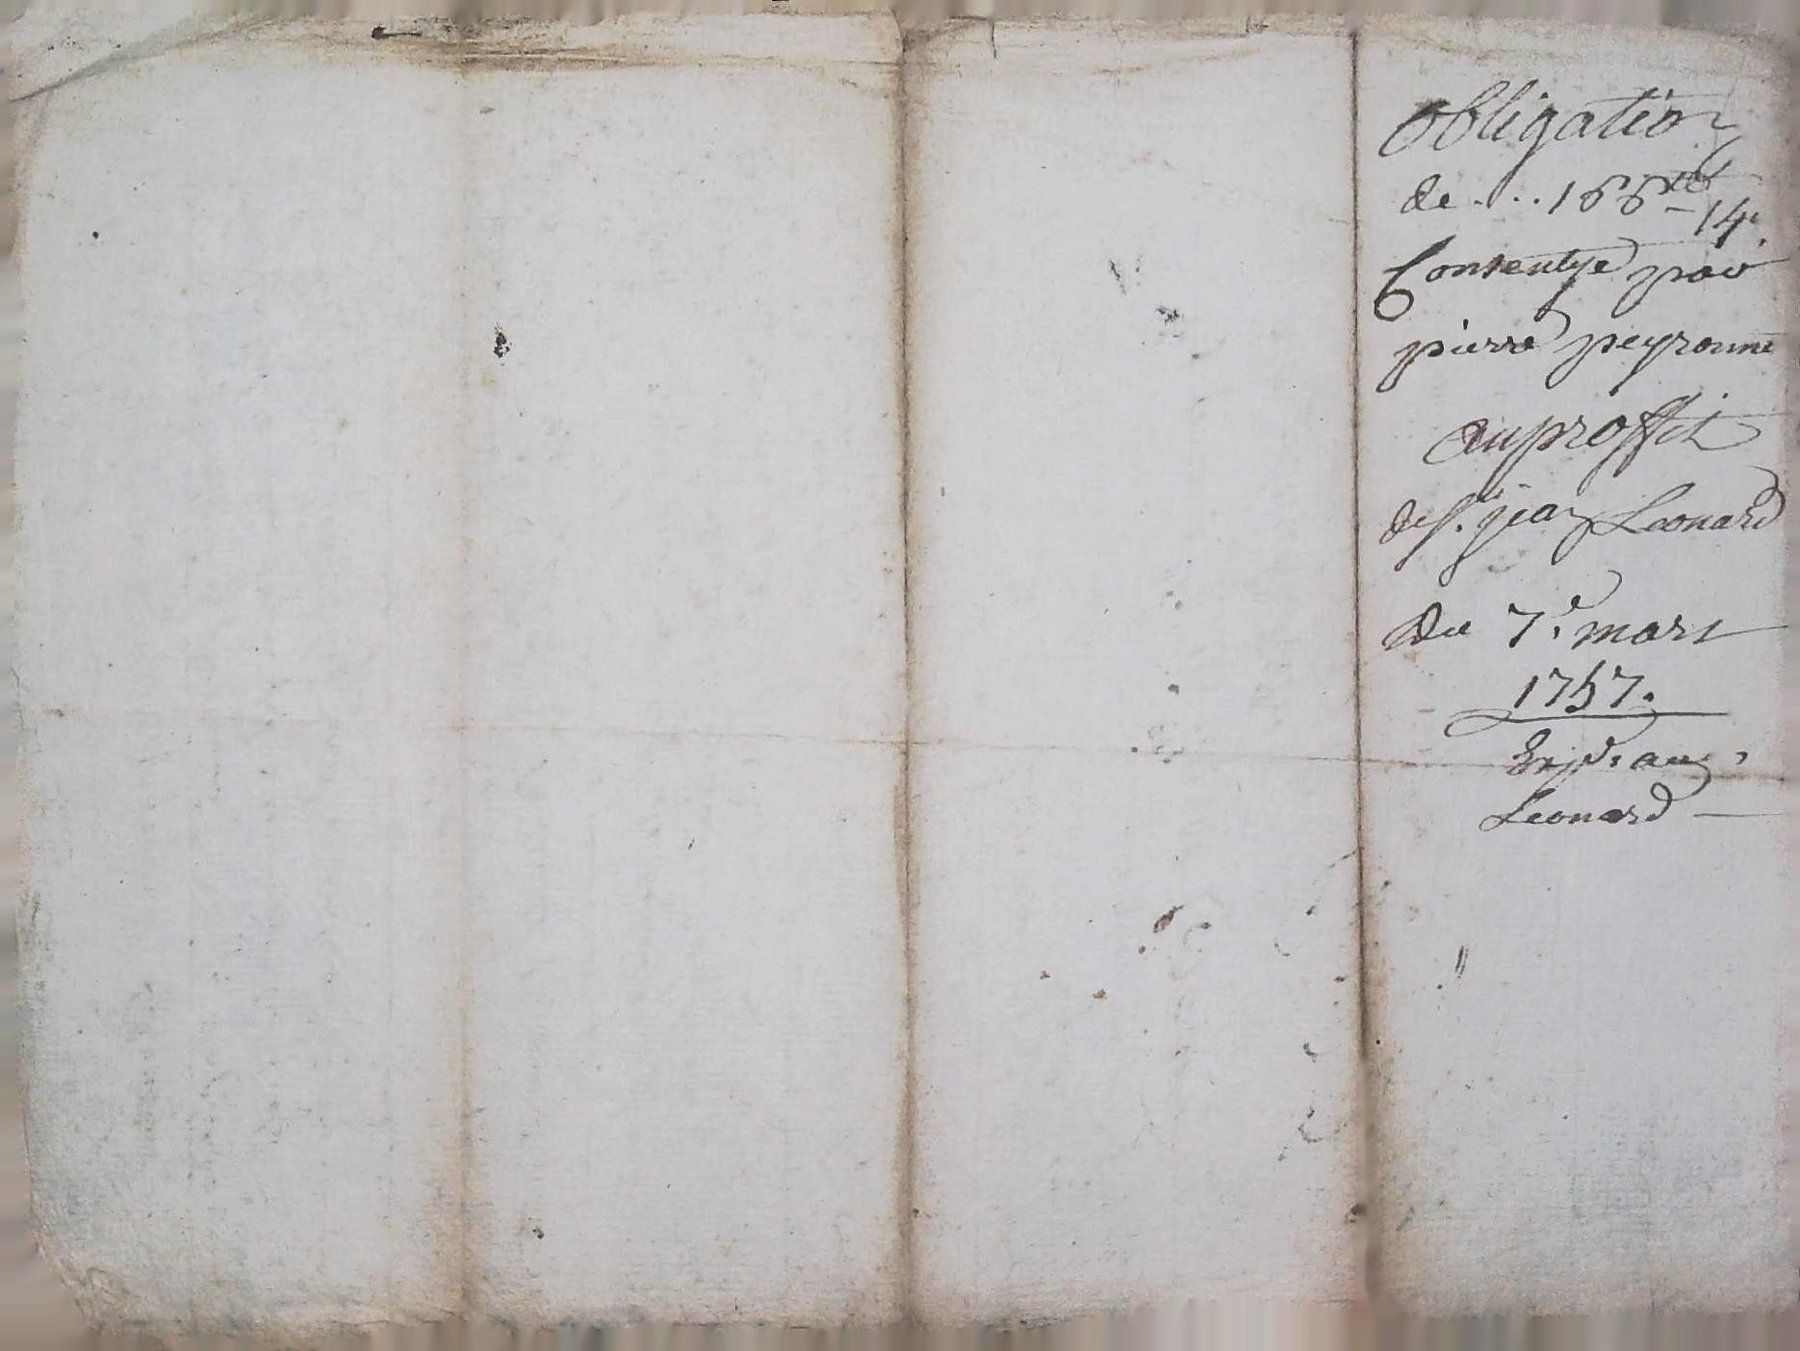 obligation
de . . . 166ᵗᵗ 14ˢ.
Consentye par
pierre peyronne
au proffit
de sʳ. jean Leonard
du 7.ᵉ mars
1757.
Expᵉ. aud
Leonard